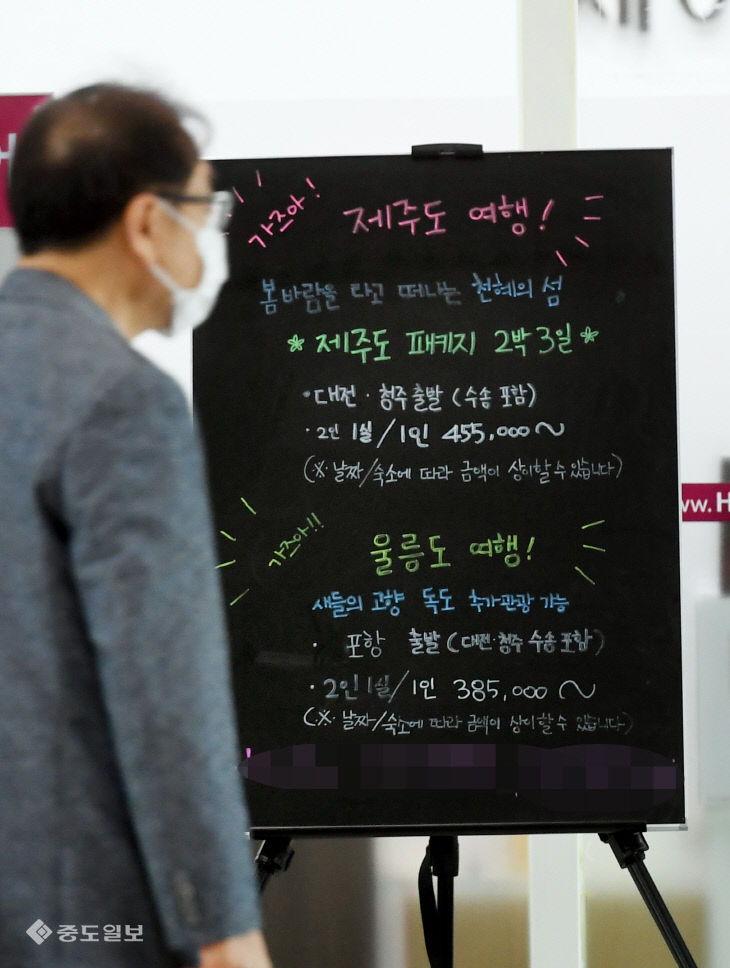 가즈아!
제주도 여행!
봄바람을 타고 떠나는 천혜의 섬
제주도 패키지 2박 3일
· 대전 · 청주 출발 (수송 포함)
· 2인 1실 / 1인 455,000 ~
(※ 날짜/숙소에 따라 금액이 상이할 수 있습니다)
가즈아!!
울릉도 여행!
새들의 고향 독도 추가관광 가능
· 포항 출발 (대전·청주 수송 포함)
· 2인 1실 / 1인 385,000 ~
(※ 날짜/숙소에 따라 금액이 상이할 수 있습니다)
중도일보